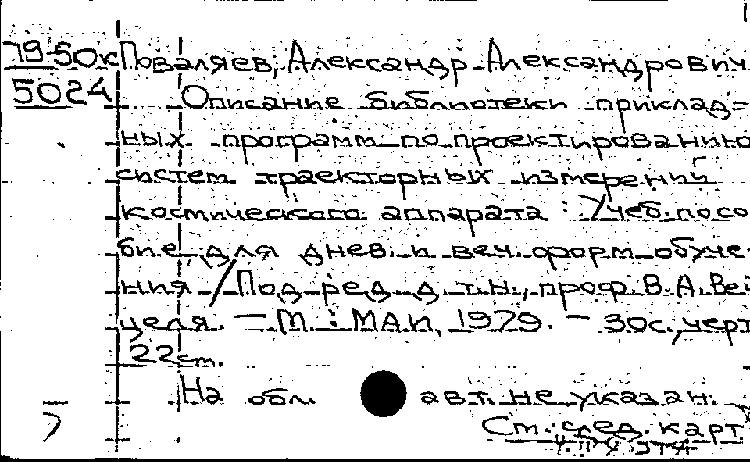 79-50к Поваляев, Александр Александрович
5024
Описание библиотеки приклад=
ных программ по проектированию
систем траекторных измерений
космического аппарата : Учеб. посо
бие для днев. и веч. форм обуче-
ния / Под ред. д.т.н., проф. В.А. Вей
целя. – М. : МАИ, 1979. – 30с., черт
22см.
На обл. авт. не указан.
См. след. карт